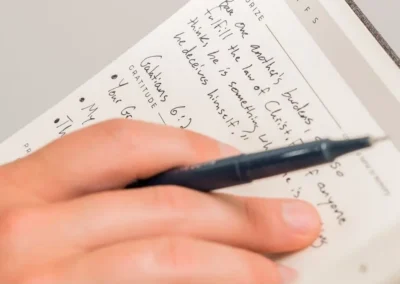 ORIZE
F S
Bear one another's burdens, so
fulfill the law of Christ. If anyone
thinks he is something
he deceives himself,"
Galatians 6:2
GRATITUDE
• Your
• My
• Th